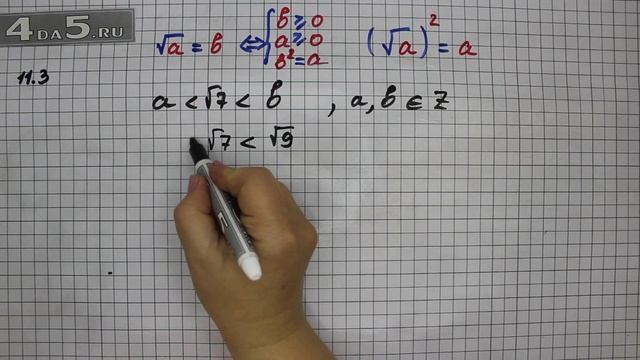 4DA5.RU
√a = b ⇔ { b ⩾ 0
a ⩾ 0
b² = a
(√a)² = a
11.3
a < √7 < b , a, b ∈ Z
√7 < √9